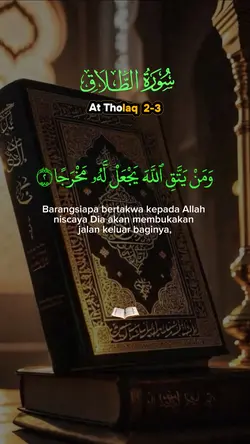 سُوْرَةُ الطَّلَاقِ
At Tholaq 2-3
وَمَنْ يَتَّقِ ٱللَّهَ يَجْعَلْ لَّهُۥ مَخْرَجًا ٢
Barangsiapa bertakwa kepada Allah
niscaya Dia akan membukakan
jalan keluar baginya,